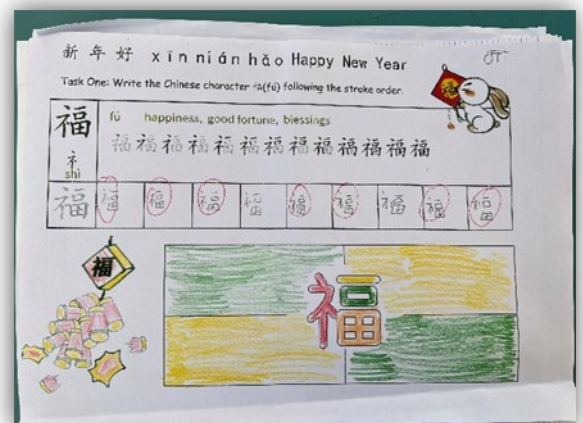 新年好 xīn nián hǎo Happy New Year
Task One: Write the Chinese character (fú) following the stroke order.
福
fú happiness, good fortune, blessings
礻
shì
福福福福福福福福福福福福福
福 福 福 福 福 福 福 福 福 福
福
福